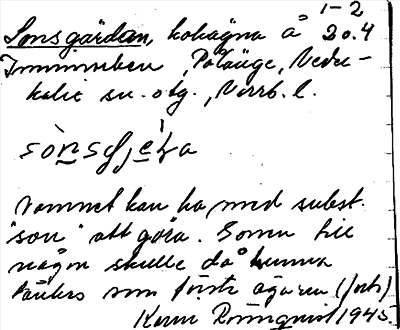 1-2
Sonsgärdan, kohagna å 20.4
Pålänge, Neder-
kalix sn. o tg., Norrb. l.
Namnet kan ha med subst.
"son" att göra. Sonen till
någon skulle då kunna
tänkas som förste ägaren (forts)
Karin Rönnqvist 1945.